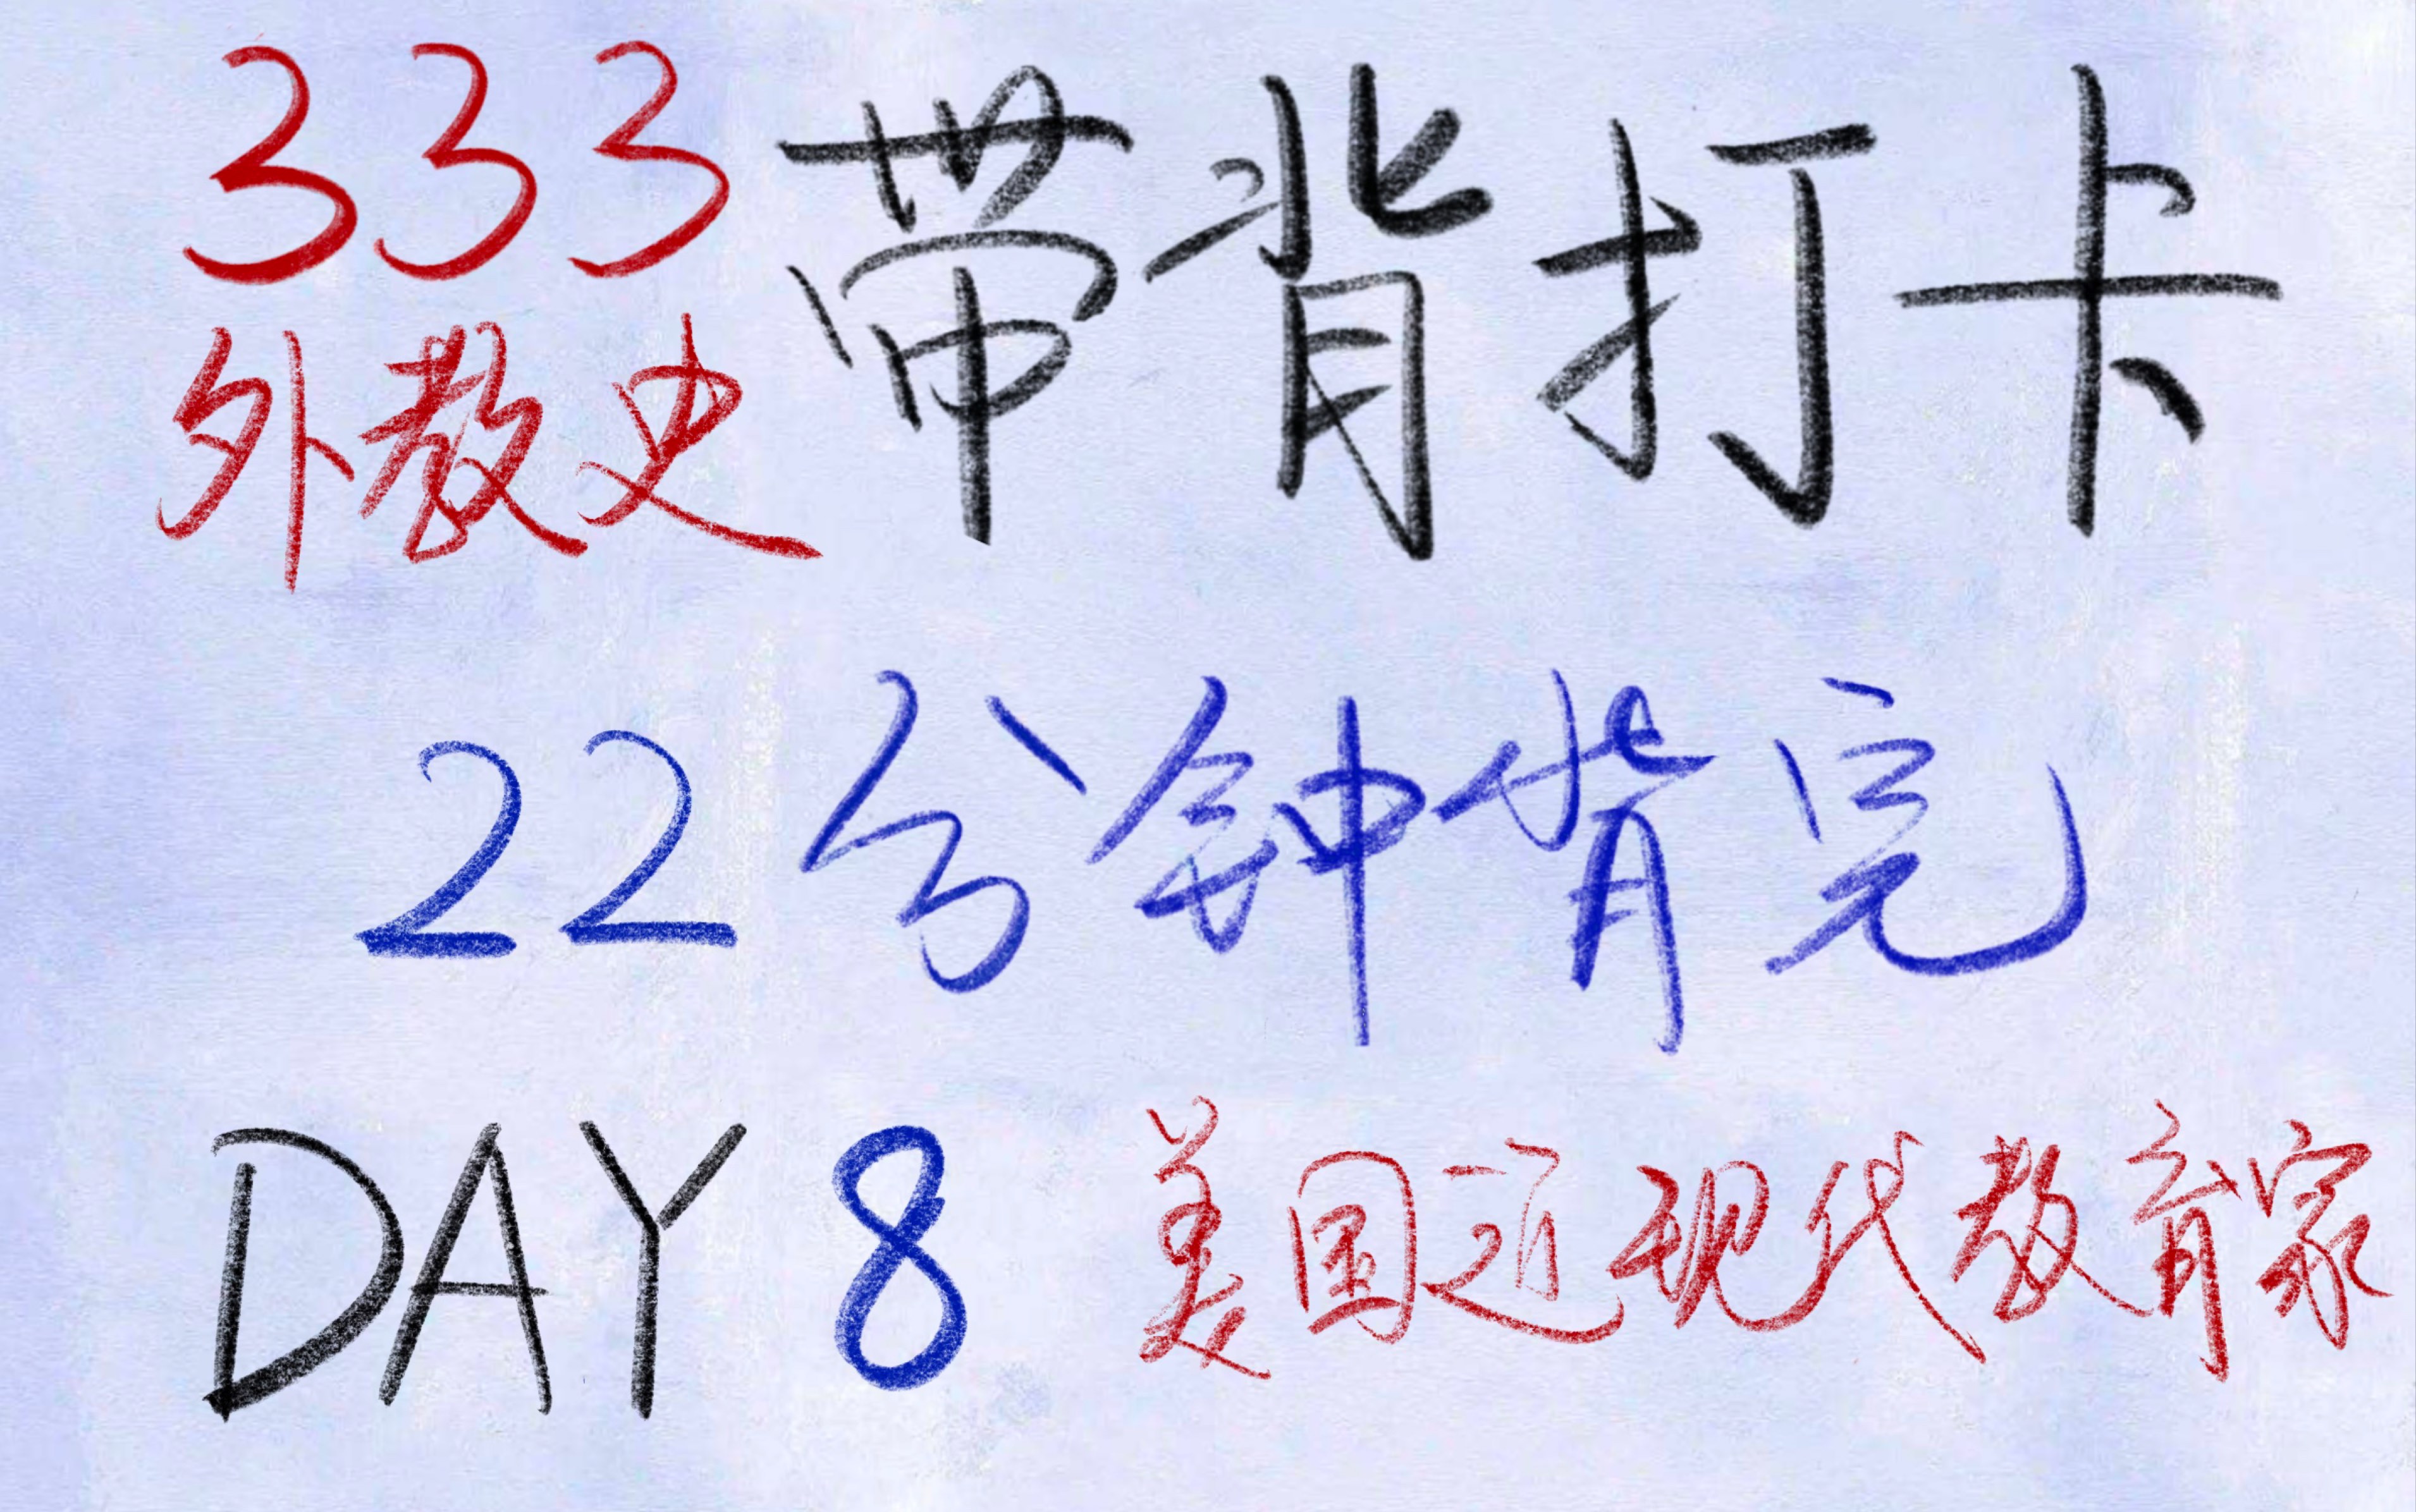 333带背打卡
外教史
22分钟背完
DAY 8 美国近现代教育家